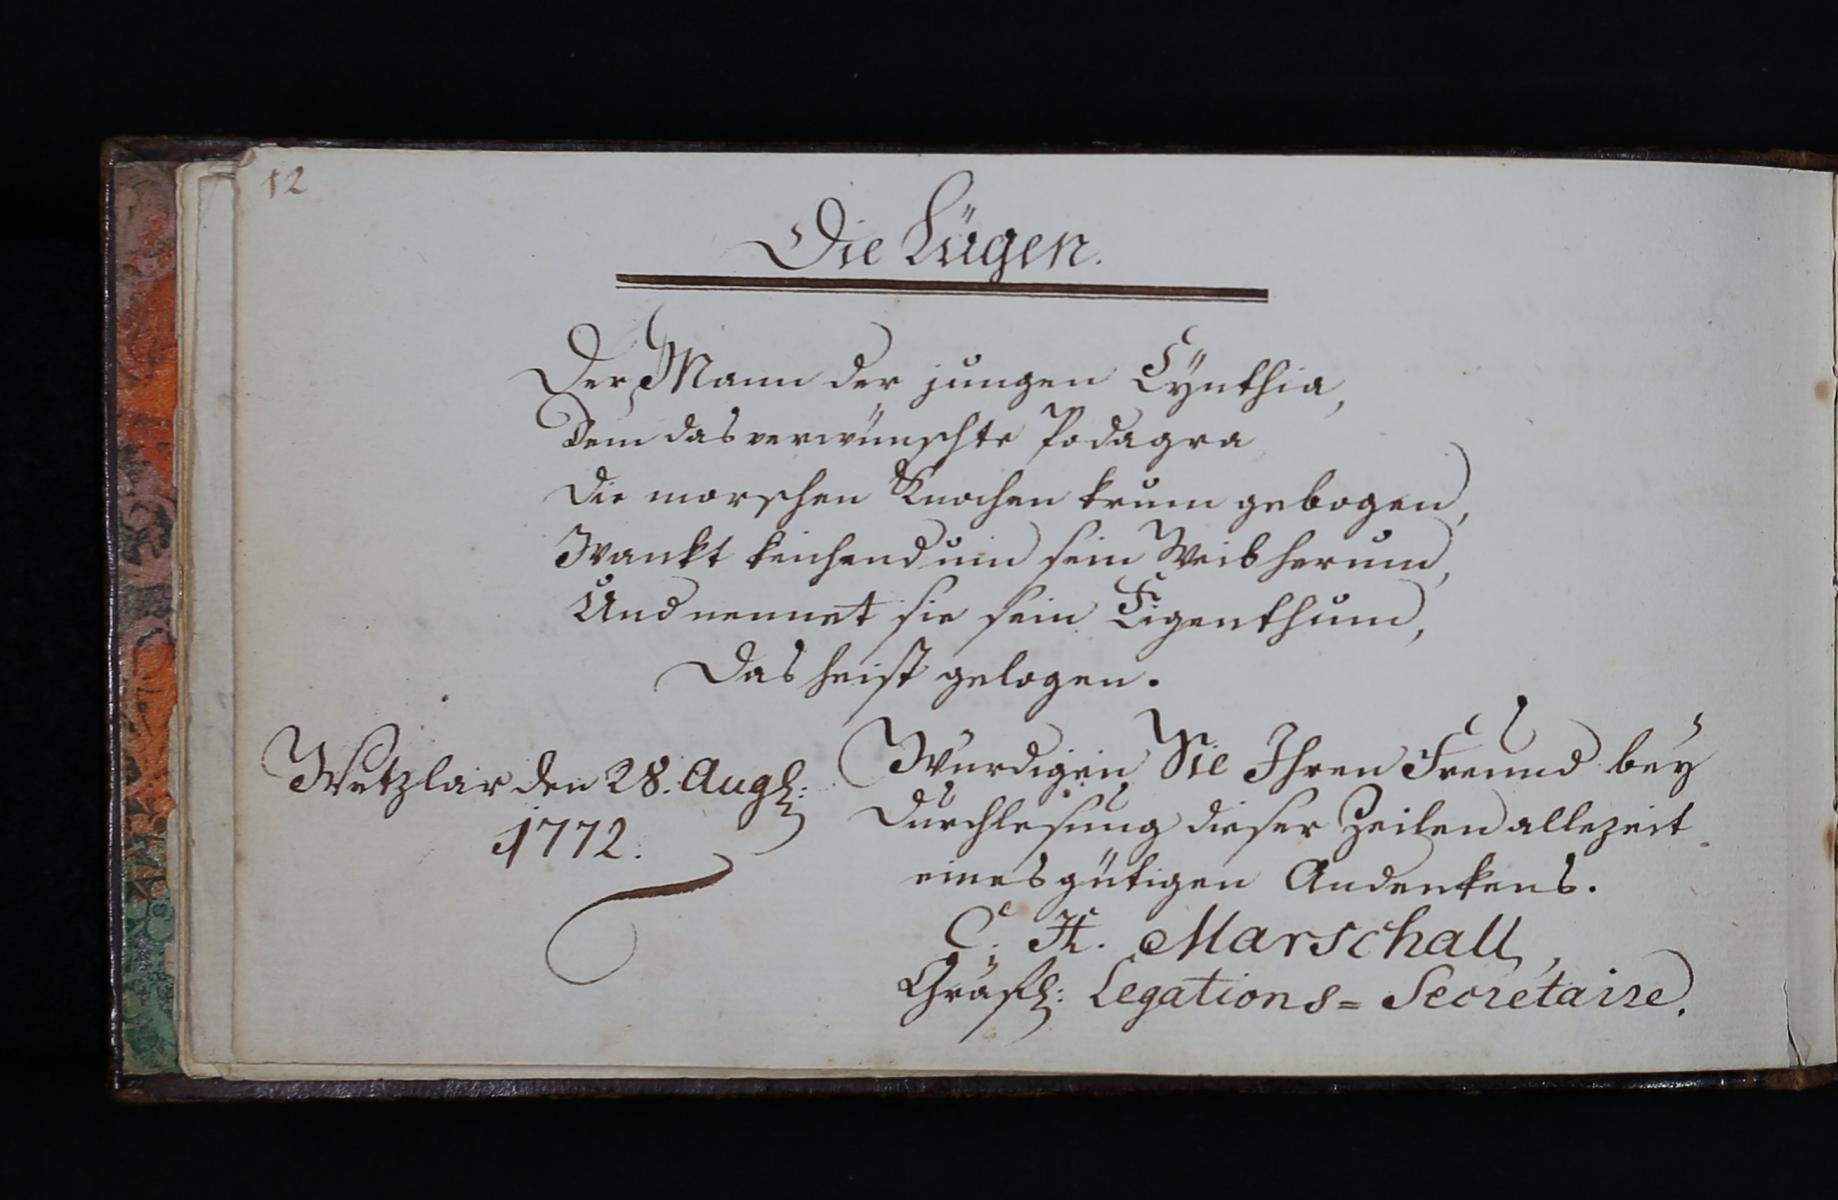 12
Die Lügen.
Der Mann der jungen Cÿnthia,
Dem das verwünschte Podagra
Die morschen Knochen krum gebogen,
Wankt keichend um sein Weib herum,
Und nennet sie sein Eigenthum,
Das heist gelogen.
Wetzlar den 28. Augl:
1772.
Würdigen Sie Ihren Freund beÿ
Durchlesung dieser Zeilen allezeit
eines gütigen Andenkens.
C. H. Marschall,
Gräfl: Legations=Secrétaire.